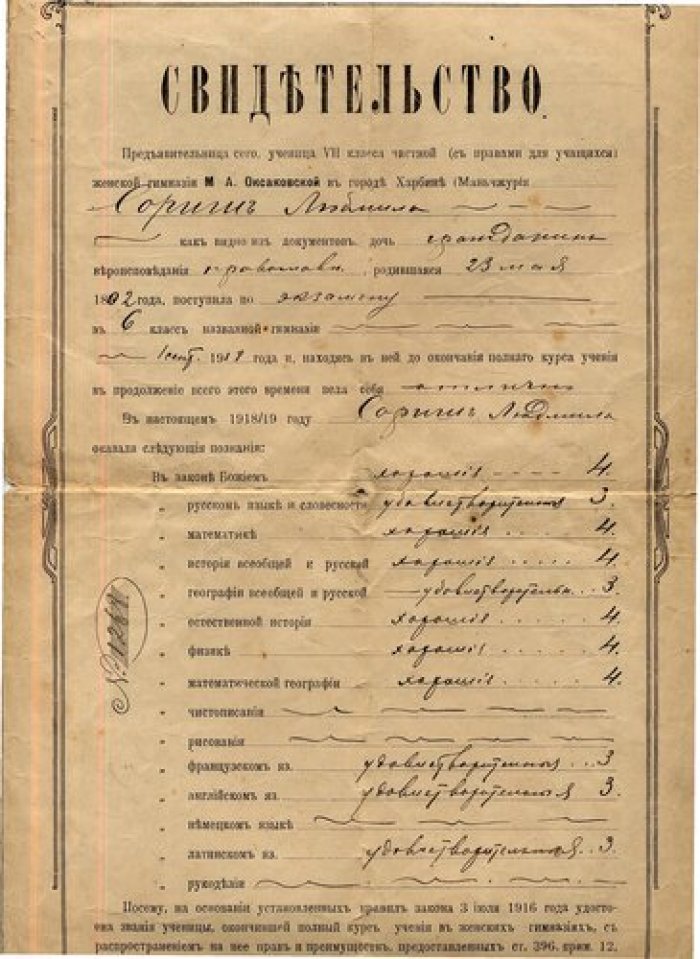 СВИДѢТЕЛЬСТВО
Предъявительница сего, ученица VII класса частной (съ правами для учащихся)
женской гимназіи М А. Оксаковской въ городѣ Харбинѣ (Маньчжурія
Сориш Людмила
какъ видно изъ документовъ, дочь гражданина
вѣроисповѣданія православн. , родившаяся 23 мая
1802 года, поступила по экзамену
въ 6 классъ названной гимназіи
1 сент. 191 года и, находясь въ ней до окончанія полнаго курса ученія
въ продолженіе всего этого времени вела себя отлично
Въ настоящемъ 1918/19 году Сориш Людмила
оказала слѣдующія познанія:
Въ законѣ Божіемъ хорошія 4
„ русскомъ языкѣ и словесности удовлетворительныя 3.
„ математикѣ хорошія 4.
„ исторіи всеобщей и русской хорошія 4.
„ географіи всеобщей и русской удовлетворительн. 3.
„ естественной исторіи хорошія 4.
„ физикѣ хорошія 4.
„ математической географіи хорошія 4.
„ чистописаніи
„ рисованіи
„ французскомъ яз. удовлетворительныя 3
„ англійскомъ яз. удовлетворительныя 3.
„ нѣмецкомъ языкѣ
„ латинскомъ яз. удовлетворительныя 3.
„ рукодѣліи
Посему, на основаніи установленныхъ правилъ закона 3 іюля 1916 года удосто-
ена званія ученицы, окончившей полный курсъ ученія въ женскихъ гимназіяхъ, съ
распространеніемъ на нее правъ и преимуществъ, предоставленныхъ ст. 396. прим. 12.
№ 1264.